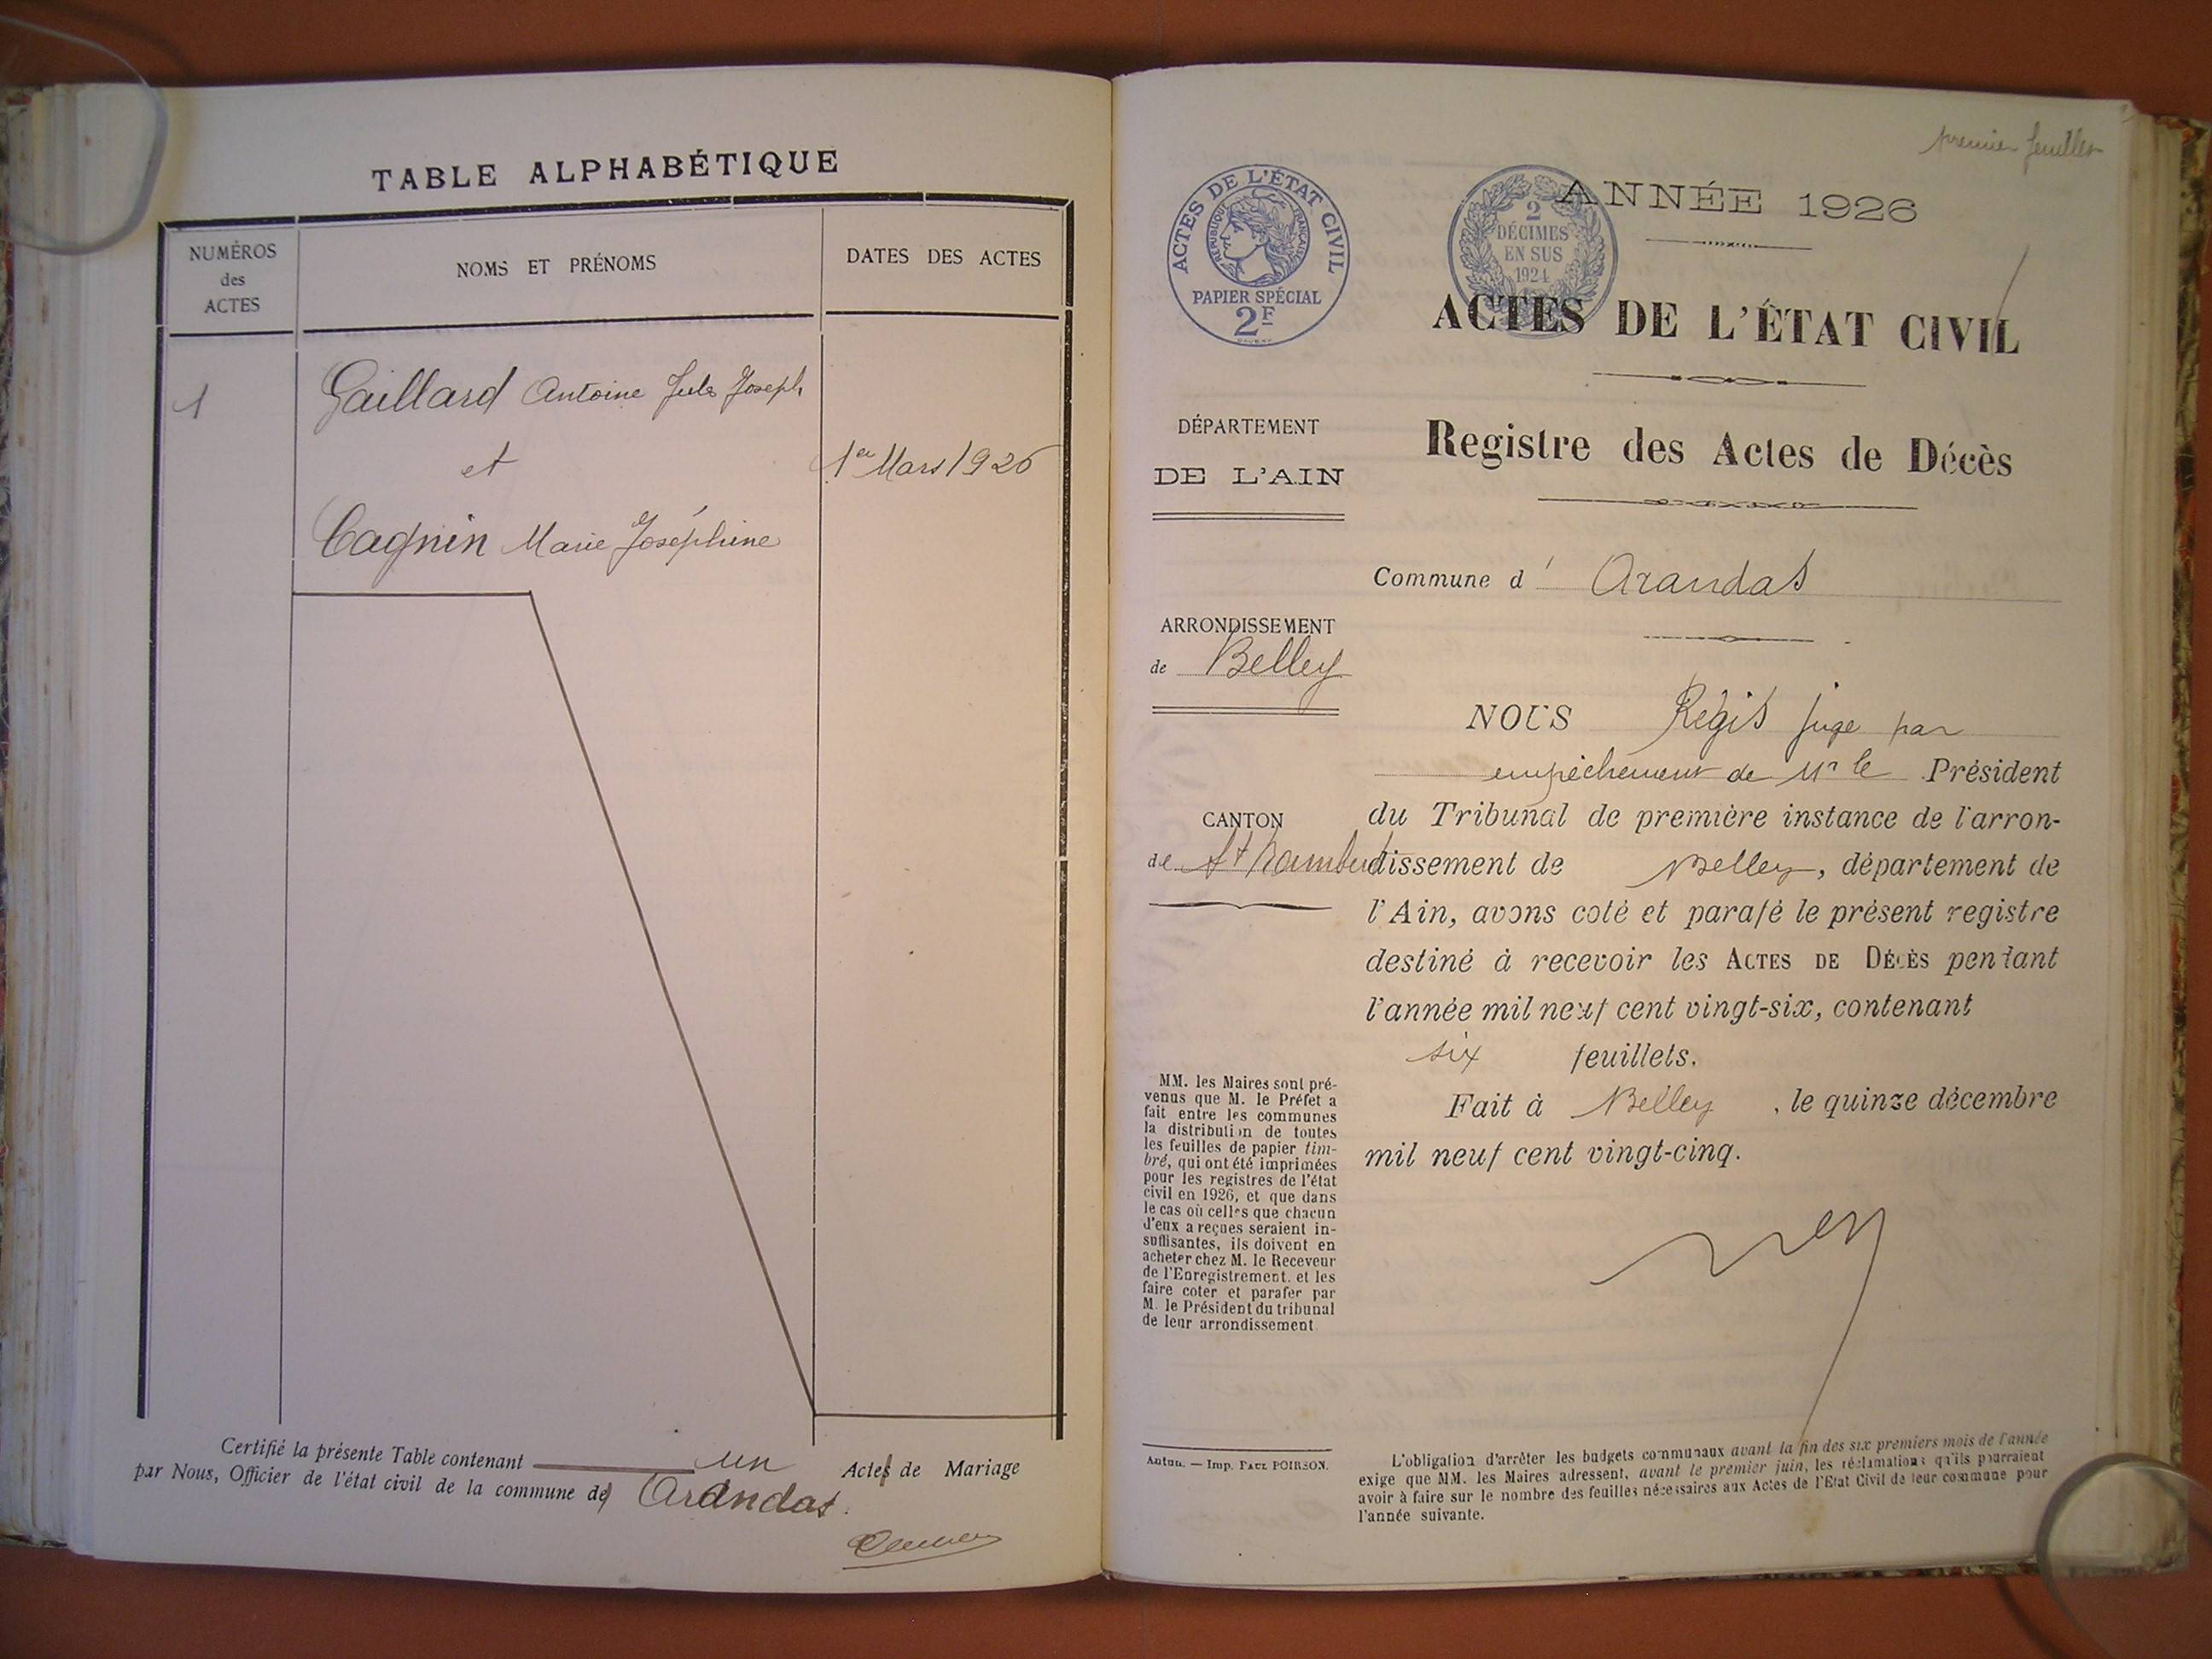 TABLE ALPHABÉTIQUE
NUMÉROS
des
ACTES
NOMS ET PRÉNOMS
DATES DES ACTES
1
Gaillard Antoine Jules Joseph
et
1er Mars 1926
Cagnin Marie Joséphine
Certifié la présente Table contenant un Actes de Mariage
par Nous, Officier de l'état civil de la commune de Arandas.
premier feuillet
ACTES DE L'ÉTAT CIVIL
RÉPUBLIQUE FRANÇAISE
PAPIER SPÉCIAL
2F
2
DÉCIMES
EN SUS
1924
ANNÉE 1926
ACTES DE L'ÉTAT CIVIL
Registre des Actes de Décès
DÉPARTEMENT
DE L'AIN
Commune d' Arandas
ARRONDISSEMENT
de Belley
CANTON
de St Rambert
NOUS Régis juge par
empêchement de Mr le Président
du Tribunal de première instance de l'arron-
dissement de Belley, département de
l'Ain, avons coté et parafé le présent registre
destiné à recevoir les ACTES DE DÉCÈS pendant
l'année mil neuf cent vingt-six, contenant
six feuillets.
Fait à Belley, le quinze décembre
mil neuf cent vingt-cinq.
MM. les Maires sont pré-
venus que M. le Préfet a
fait entre les communes
la distribution de toutes
les feuilles de papier tim-
bré, qui ont été imprimées
pour les registres de l'état
civil en 1926, et que dans
le cas où celles que chacun
d'eux a reçues seraient in-
suffisantes, ils doivent en
acheter chez M. le Receveur
de l'Enregistrement. et les
faire coter et parafer par
M. le Président du tribunal
de leur arrondissement.
Autun. — Imp. PAUL POIRSON.
L'obligation d'arrêter les budgets communaux avant la fin des six premiers mois de l'année
exige que MM. les Maires adressent, avant le premier juin, les réclamations qu'ils pourraient
avoir à faire sur le nombre des feuilles nécessaires aux Actes de l'Etat Civil de leur commune pour
l'année suivante.